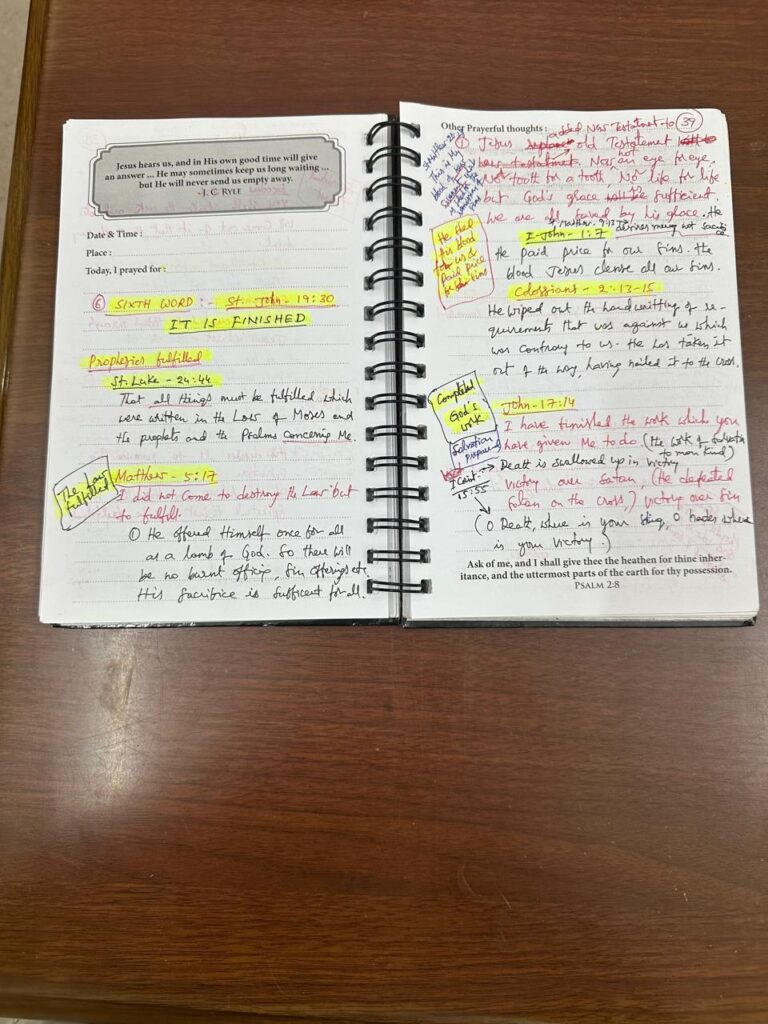 Jesus hears us, and in His own good time will give
an answer ... He may sometimes keep us long waiting ...
but He will never send us empty away.
- J. C. Ryle
Date & Time :
Place :
Today, I prayed for :
⑥ SIXTH WORD :- St. John - 19:30
IT IS FINISHED
Prophesies fulfilled
St. Luke - 24:44
That all things must be fulfilled which
were written in the Law of Moses and
the prophets and the Psalms concerning Me.
The Law
fulfilled
Matthew - 5:17
I did not come to destroy the Law but
to fulfill.
① He offered Himself once for all
as a lamb of God. So there will
be no burnt offering, Sin offerings etc.
His Sacrifice is sufficent for all.
Other Prayerful thoughts :
39
added New Testatment to
① Jesus old Testatment
Now an not eye for eye,
No tooth for a tooth, No life for life
but God's grace sufficient.
we are all saved by his grace. He
Matthew 9:13 desires mercy not sacrifice
This is My
He shed
his blood
for us &
paid price
for sins
I-John - 1:7
He paid price for our sins. the
blood Jesus clense all our sins.
Colossians - 2:13-15
He wiped out the handwritting of re-
quirements that was against us which
was contrary to us. He has taken it
out of the way, having nailed it to the cross.
Completed
God's
work
Salvation
prepared
John - 17:14
I have finished the work which you
have given Me to do (the work of salvation
to man kind)
I Cori
15:55
Death is swallowed up in victory
victory over Satan, (He defeated
Satan on the cross,) victory over Sin
(O Death, where is your sting, O hades where
is your victory?)
Ask of me, and I shall give thee the heathen for thine inher-
itance, and the uttermost parts of the earth for thy possession.
Psalm 2:8